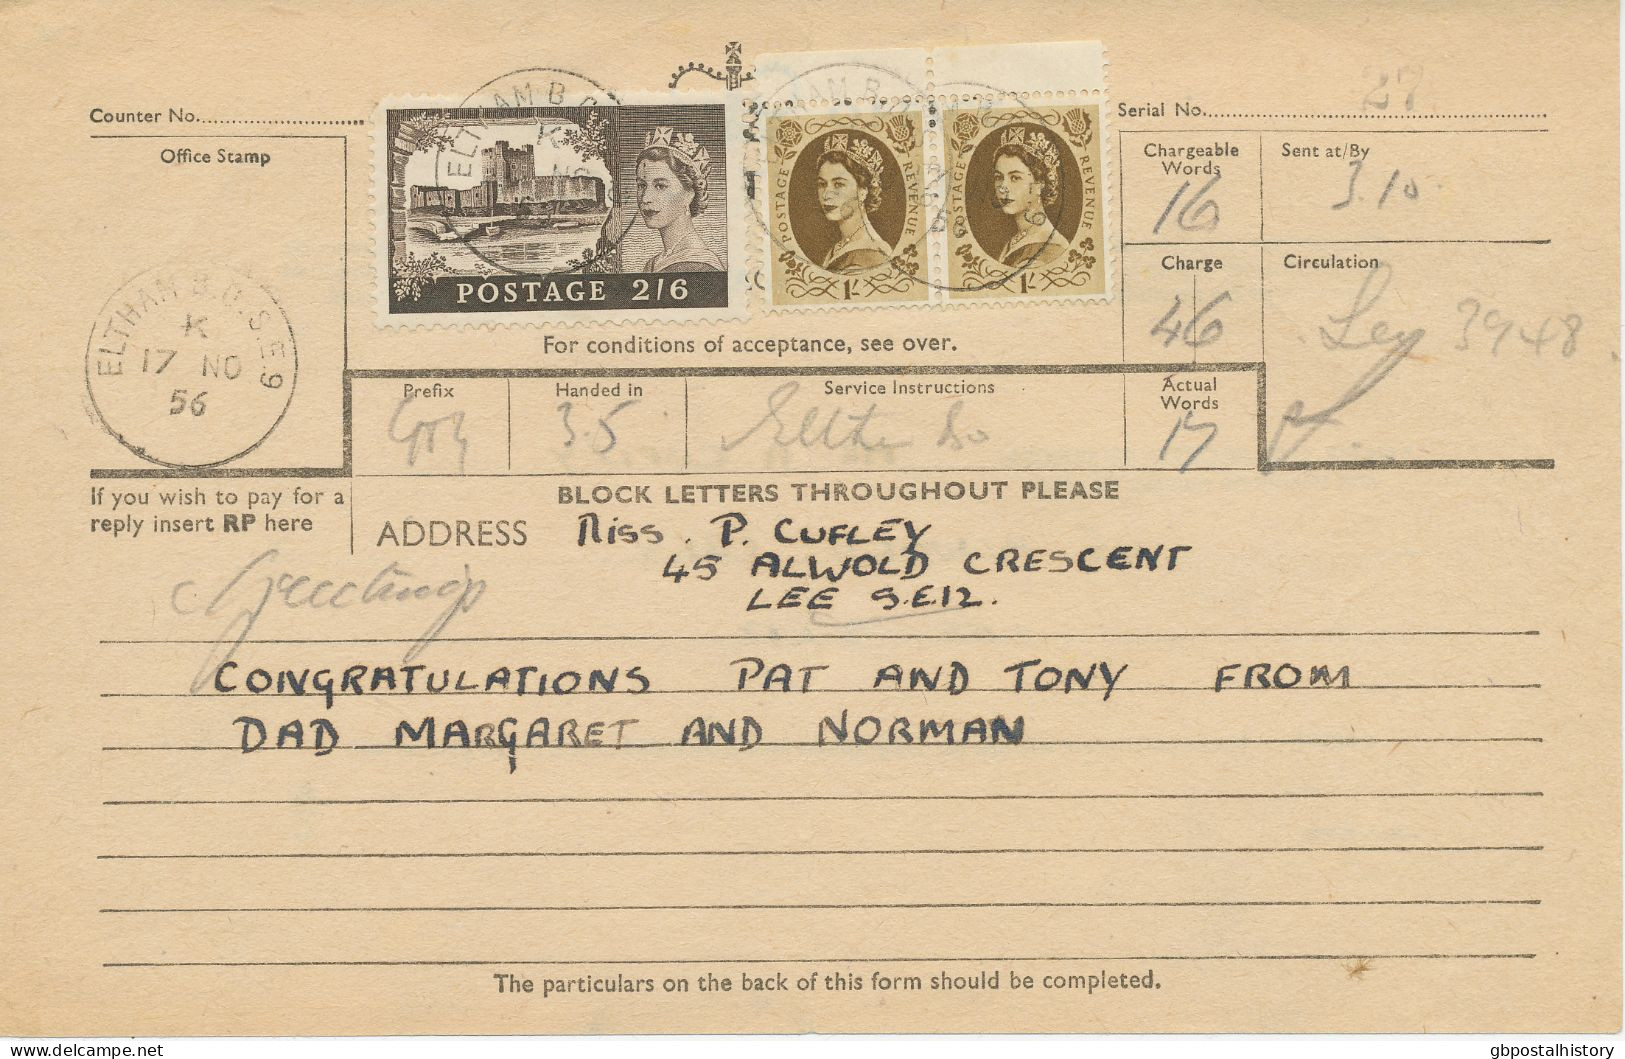 Counter No.
Serial No. 27
Office Stamp
ELTHAM B.O. S.E.9
K
17 NO
56
POSTAGE 2/6
POSTAGE REVENUE
1/-
POSTAGE REVENUE
1/-
Chargeable Words
16
Sent at/By
3.10
Charge
4 6
Circulation
Ley 3948
For conditions of acceptance, see over.
Prefix
Handed in
3.5
Service Instructions
Actual Words
17
If you wish to pay for a
reply insert RP here
BLOCK LETTERS THROUGHOUT PLEASE
ADDRESS MISS. P. CUFLEY
45 ALWOLD CRESCENT
LEE S.E.12.
Greetings
CONGRATULATIONS PAT AND TONY FROM
DAD MARGARET AND NORMAN
The particulars on the back of this form should be completed.
delcampe.net
gbpostalhistory